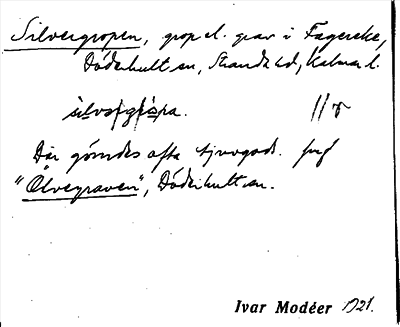 Silvergropen, grop el. grav i Fagereke,
Döderhult sn, Stranda hd, Kalmar l.
silvəgropa. //r
Där gömdes ofta tjuvgods. Jmf
"Ölvegraven", Döderhult sn.
Ivar Modéer 1921.